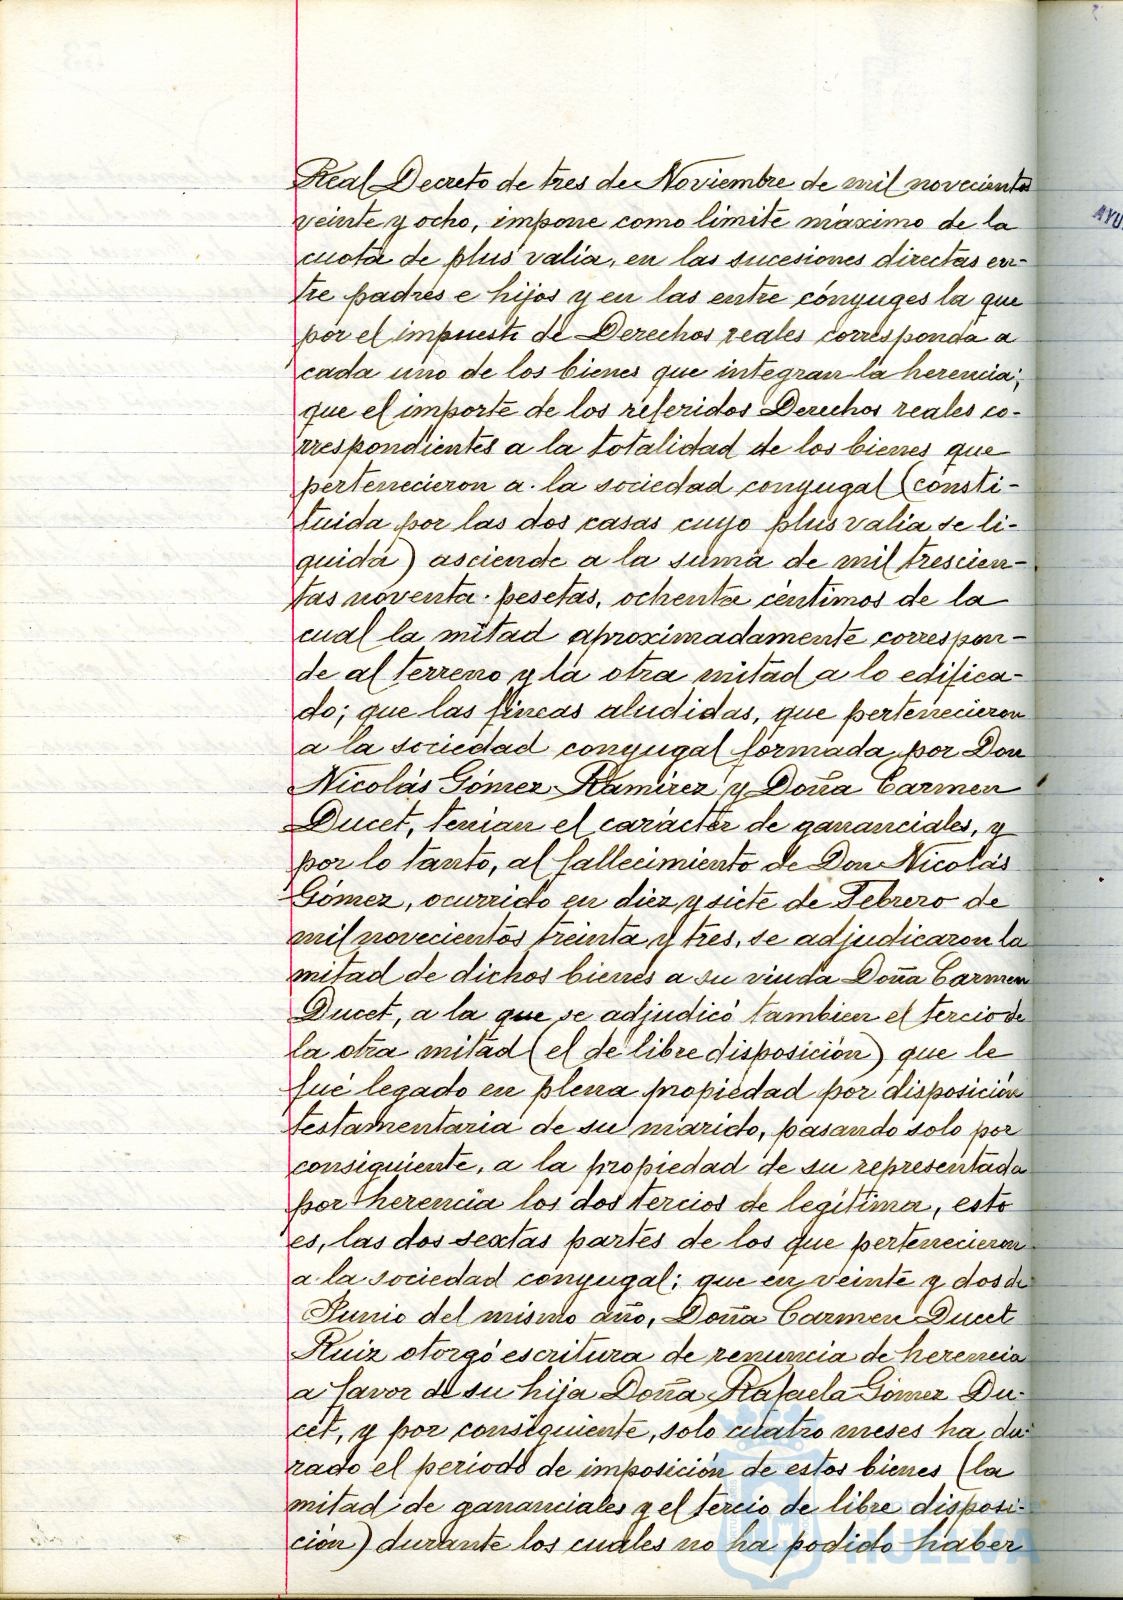 Real Decreto de tres de Noviembre de mil novecientos
veinte y ocho, impone como limite máximo de la
cuota de plus valia, en las sucesiones directas en-
tre padres e hijos y en las entre cónyuges la que
por el impuesto de Derechos reales corresponda a
cada uno de los bienes que integran la herencia;
que el importe de los referidos Derechos reales co-
rrespondientes a la totalidad de los bienes que
pertenecieron a la sociedad conyugal (consti-
tuida por las dos casas cuyo plus valia se li-
quida) asciende a la suma de mil trescien-
tas noventa pesetas, ochenta céntimos de la
cual la mitad aproximadamente correspon-
de al terreno y la otra mitad a lo edifica-
do; que las fincas aludidas, que pertenecieron
a la sociedad conyugal formada por Don
Nicolás Gómez Ramírez y Doña Carmen
Ducet, tenian el carácter de gananciales, y
por lo tanto, al fallecimiento de Don Nicolás
Gómez, ocurrido en diez y siete de Febrero de
mil novecientos treinta y tres, se adjudicaron la
mitad de dichos bienes a su viuda Doña Carmen
Ducet, a la que se adjudicó tambien el tercio de
la otra mitad (el de libre disposición) que le
fué legado en plena propiedad por disposición
testamentaria de su marido, pasando solo por
consiguiente, a la propiedad de su representada
por herencia los dos tercios de legítima, esto
es, las dos sextas partes de los que pertenecieron
a la sociedad conyugal; que en veinte y dos de
Junio del mismo año, Doña Carmen Ducet
Ruiz otorgó escritura de renuncia de herencia
a favor de su hija Doña Rafaela Gómez Du-
cet, y por consiguiente, solo cuatro meses ha du-
rado el periodo de imposición de estos bienes (la
mitad de gananciales y el tercio de libre disposi-
ción) durante los cuales no ha podido haber
HUELVA
AYU